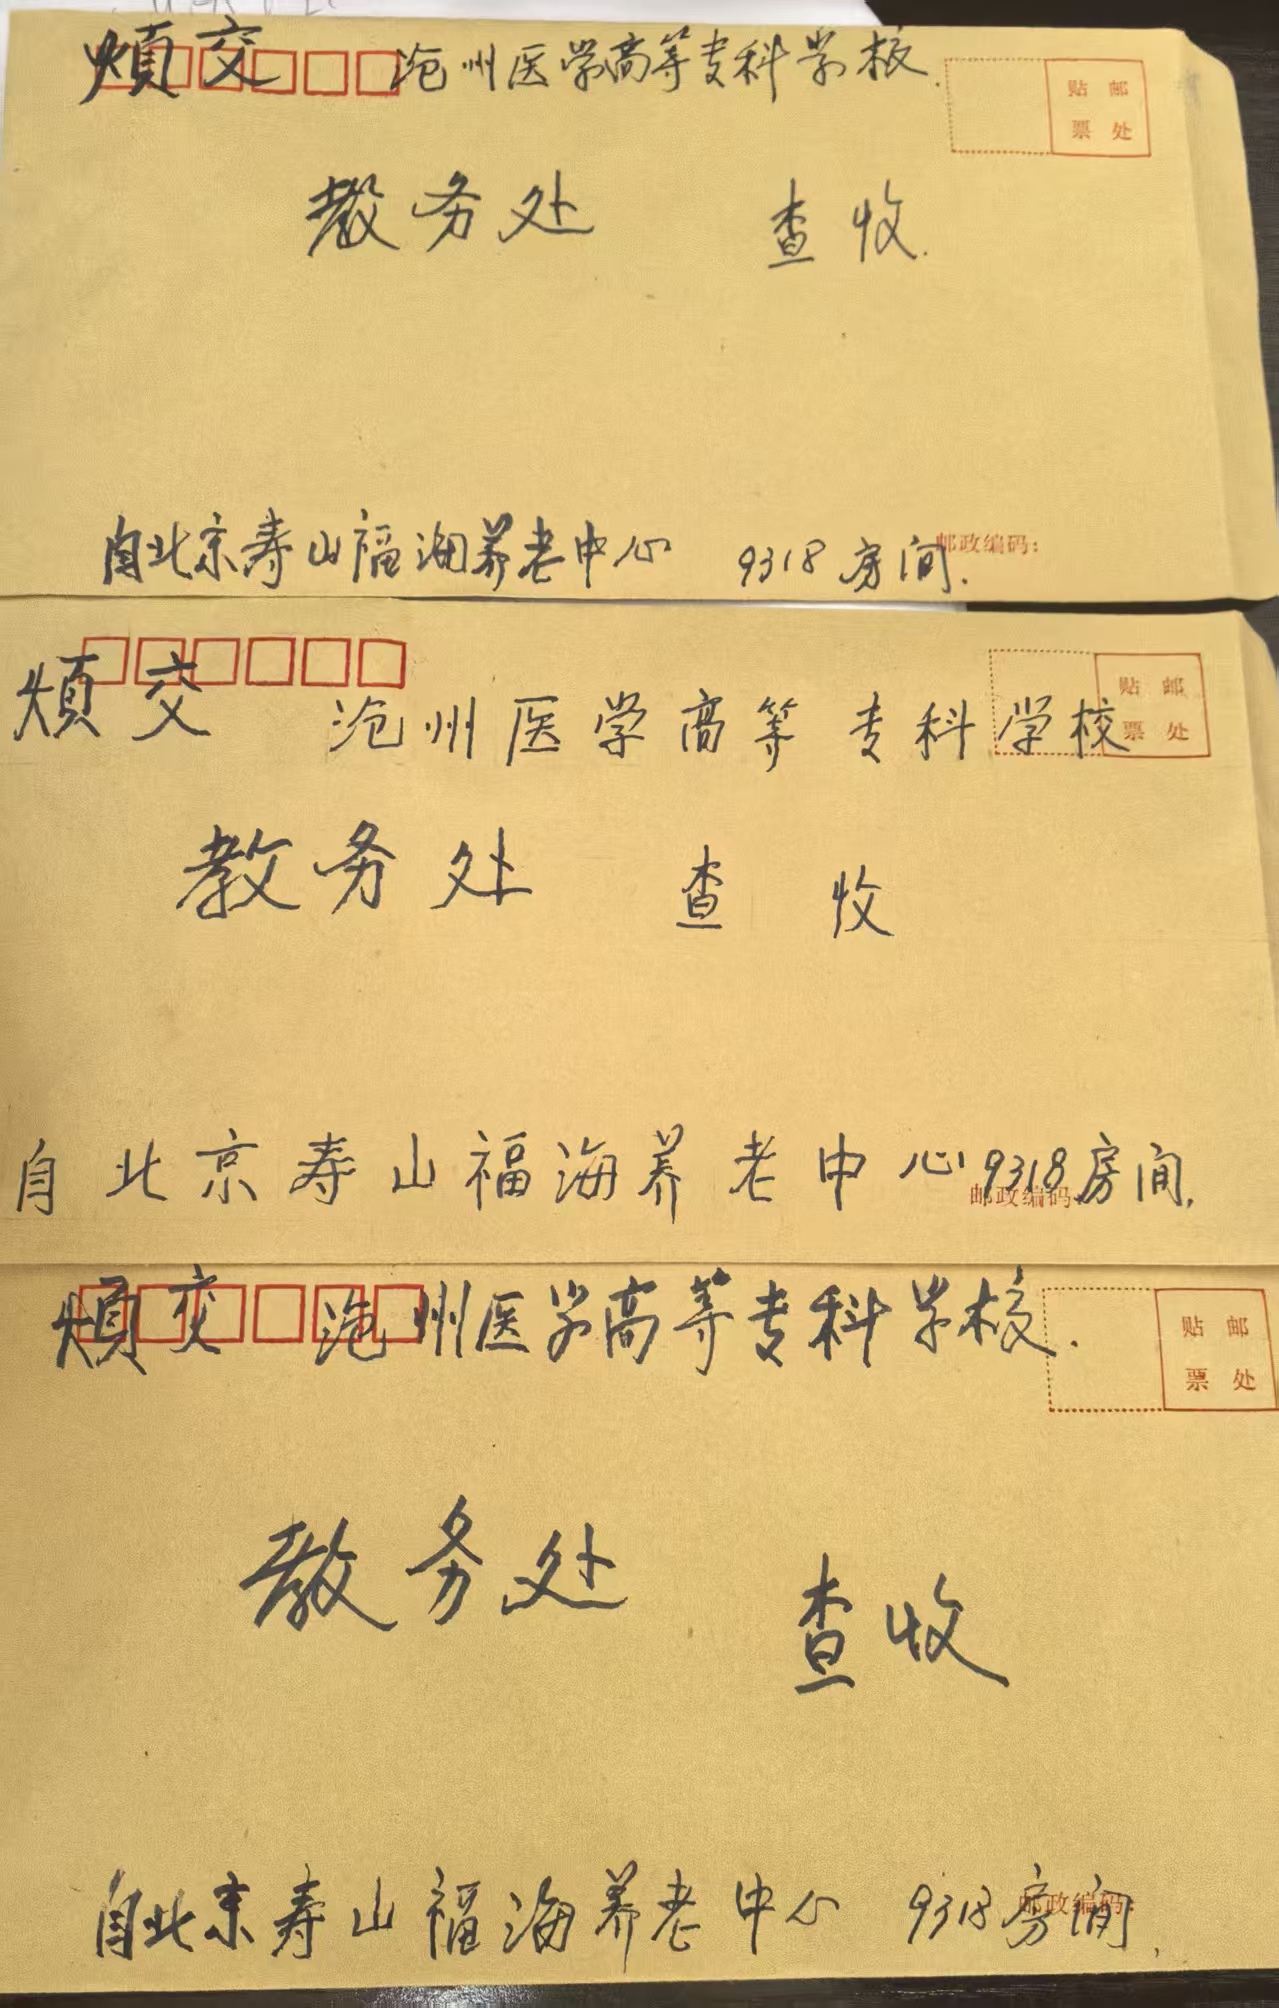 煩交 沧州医学高等专科学校.
贴邮
票处
教务处 查收.
自北京寿山福海养老中心 9318房间.
邮政编码:
煩交 沧州医学高等专科学校
贴邮
票处
教务处 查收
自北京寿山福海养老中心9318房间.
邮政编码
煩交 沧州医学高等专科学校.
贴邮
票处
教务处 查收
自北京寿山福海养老中心 9318房间.
邮政编码: